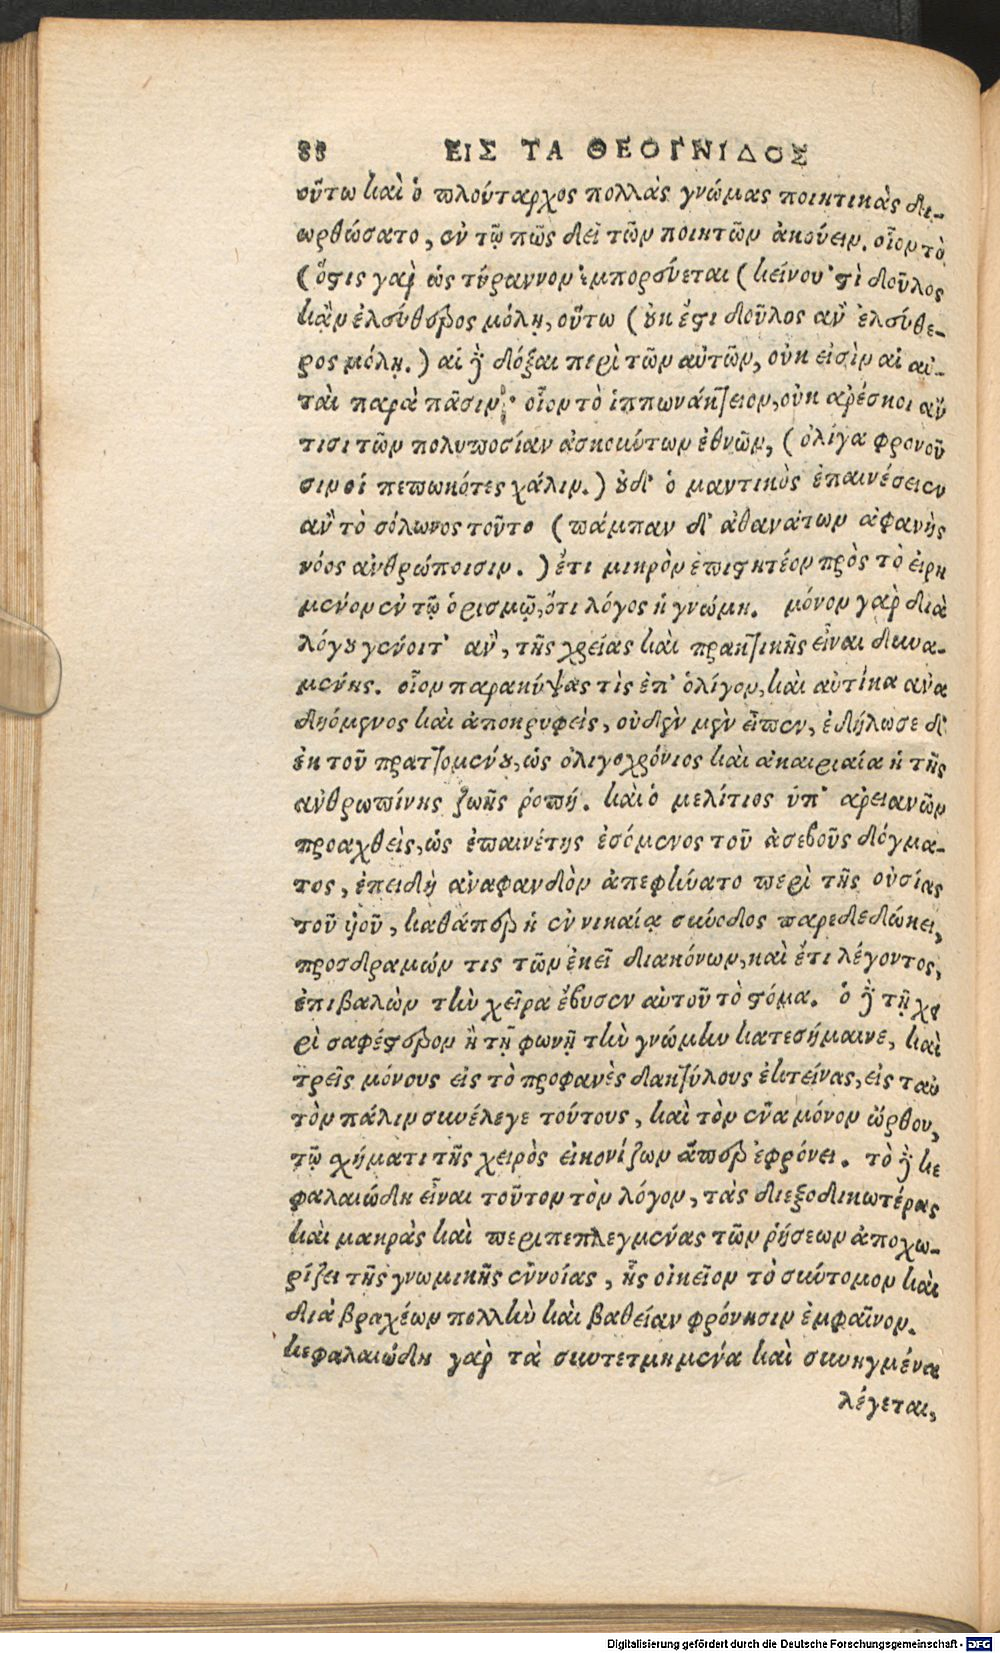 88 ΕΙΣ ΤΑ ΘΕΟΓΝΙΔΟΣ
οὕτω καὶ ὁ πλούταρχος πολλὰς γνώμας ποιητικὰς δι-
ωρθώσατο, ἐν τῷ πῶς δεῖ τῶν ποιητῶν ἀκούειν. οἷον τὸ
(ὅστις γὰρ ὡς τύραννον ἐμπορεύεται (κείνου 'στὶ δοῦλος
κἂν ἐλεύθερος μόλῃ, οὕτω (οὐκ ἔστι δοῦλος ἂν ἐλεύθε-
ρος μόλῃ.) αἱ δὲ δόξαι περὶ τῶν αὐτῶν, οὐκ εἰσὶν αἱ αὐ-
ταὶ παρὰ πᾶσιν· οἷον τὸ ἱππωνάκτειον, οὐκ ἀρέσκοι ἄν
τισι τῶν πολυποσίαν ἀσκούντων ἐθνῶν, (ὀλίγα φρονοῦ
σιν οἱ πεπωκότες χάλιν.) οὐδ' ὁ μαντικὸς ἐπαινέσειεν
ἂν τὸ σόλωνος τοῦτο (πάμπαν δ' ἀθανάτων ἀφανὴς
νόος ἀνθρώποισιν.) ἔτι μικρὸν ἐπιστητέον πρὸς τὸ εἰρη
μένον ἐν τῷ ὁρισμῷ, ὅτι λόγος ἡ γνώμη. μόνον γὰρ διὰ
λόγου γένοιτ' ἂν, τῆς χρείας καὶ πρακτικῆς εἶναι δυνα-
μένης. οἷον παρακύψας τὶς ἐπ' ὀλίγον, καὶ αὐτίκα ἀνα
δυόμενος καὶ ἀποκρυφεὶς, οὐδὲν μὲν εἶπεν, ἐδήλωσε δ'
ἐκ τοῦ πραττομένου, ὡς ὀλιγοχρόνιος καὶ ἀκαιριαία ἡ τῆς
ἀνθρωπίνης ζωῆς ῥοπή. καὶ ὁ μελίτιος ὑπ' ἀρειανῶν
προαχθεὶς, ὡς ἐπαινέτης ἐσόμενος τοῦ ἀσεβοῦς δόγμα-
τος, ἐπειδὴ ἀναφανδὸν ἀπεφήνατο περὶ τῆς οὐσίας
τοῦ υἱοῦ, καθάπερ ἡ ἐν νικαίᾳ σύνοδος παρεδεδώκει,
προσδραμών τις τῶν ἐκεῖ διακόνων, καὶ ἔτι λέγοντος,
ἐπιβαλὼν τὴν χεῖρα ἔβυσεν αὐτοῦ τὸ στόμα. ὁ δὲ τῇ χε
ρὶ σαφέστερον ἢ τῇ φωνῇ τὴν γνώμην κατεσήμαινε, καὶ
τρεῖς μόνους εἰς τὸ προφανὲς δακτύλους ἐκτείνας, εἰς ταὐ
τὸν πάλιν συνέλεγε τούτους, καὶ τὸν ἕνα μόνον ὤρθου,
τῷ σχήματι τῆς χειρὸς εἰκονίζων ἅπερ ἐφρόνει. τὸ δὲ κε
φαλαιώδη εἶναι τοῦτον τὸν λόγον, τὰς διεξοδικωτέρας
καὶ μακρὰς καὶ περιπεπλεγμένας τῶν ῥήσεων ἀποχω-
ρίζει τῆς γνωμικῆς ἐννοίας, ἧς οἰκεῖον τὸ σύντομον καὶ
διὰ βραχέων πολλὴν καὶ βαθεῖαν φρόνησιν ἐμφαῖνον.
κεφαλαιώδη γὰρ τὰ συντετμημένα καὶ συνηγμένα
λέγεται,
Digitalisierung gefördert durch die Deutsche Forschungsgemeinschaft - DFG